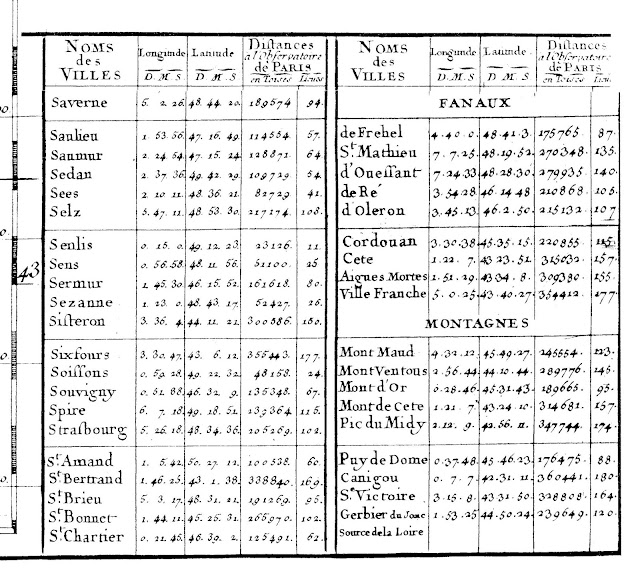 NOMS des VILLES | Longitude D. M. S | Latitude D M S | Distances a l'Observatoire de PARIS en Toises | Lieues
Saverne 5. 2. 26. 48. 44. 20. 189574 94.
Saulieu 1. 53. 56. 47. 16. 49. 114554. 57.
Saumur 2. 24. 54. 47. 15. 24. 128871. 64
Sedan 2. 37. 36. 49. 42. 29. 109729 54
Sees 2. 10. 11. 48. 36. 21. 82729 41
Selz 5. 47. 11. 48. 53. 30. 217174. 108.
Senlis 0. 15. 0. 49. 12. 23. 23126. 11
Sens 0. 56. 58. 48. 11. 56. 51100. 25
Sermur 1. 45. 30. 46. 15. 52. 161618. 80
Sezanne 1. 23. 0. 48. 43. 17. 52427. 26.
Sisteron 3. 36. 4. 44. 11. 21. 300886. 150.
Sixfours 3. 30. 47. 43. 6. 12. 355443. 177.
Soissons 0. 59. 28. 49. 22. 32. 48158. 24.
Souvigny 0. 51. 88. 46. 32. 9. 135348. 67.
Spire 6. 7. 18. 49. 18. 51. 239364 115.
Strasbourg 5. 26. 18. 48. 34. 36. 205269. 102.
St. Amand 1. 5. 42. 50. 27. 12. 100538. 60.
St. Bertrand 1. 46. 25. 43. 1. 38. 338840. 169.
St. Brieu 5. 3. 17. 48. 31. 21. 191269. 95.
St. Bonnet 1. 44. 11. 45. 25. 31. 205970. 102.
St. Chartier 0. 21. 45. 46. 39. 2. 125491. 62.
43
NOMS des VILLES | Longitude D. M. S | Latitude. D M S | Distances a l'Observatoire de PARIS en Toises | Lieues
FANAUX
de Frehel 4. 40. 0. 48. 41. 3. 175765. 87.
St. Mathieu 7. 7. 25. 48. 19. 52. 270348. 135.
d'Ouessant 7. 24. 33 48. 28. 30. 279935. 140.
de Ré 3. 54. 28. 46. 14. 48 210868. 105.
d'Oleron 3. 45. 13. 46. 2. 50. 215132. 107
Cordouan 3. 30. 38. 45. 35. 15. 220855. 115.
Cete 1. 22. 7. 43 23. 51. 315032. 157.
Aigues Mortes 1. 51. 29. 43 34. 8. 309380. 155.
Ville Franche 5. 0. 25. 43. 40. 27. 354412. 177.
MONTAGNES
Mont Maud 4. 32. 12. 45. 49. 27. 245554. 123.
Mont Ventous 2. 56. 44. 44. 10. 44. 289776. 145.
Mont d'Or 0. 28. 46. 45. 31. 43. 189665. 95.
Mont de Cete 1. 21. 7. 43. 24. 10. 314681. 157.
Pic du Midy 2. 12. 9. 42. 56. 11. 347744. 174.
Puy de Dome 0. 37. 48. 45. 46. 23. 176475. 88.
Canigou 0. 7. 7. 42. 31. 11. 360441. 180.
Ste. Victoire 3. 15. 8. 43. 31. 50. 328808. 164.
Gerbier du Jonc 1. 53. 25 44. 50. 24. 239649. 120.
Source de la Loire